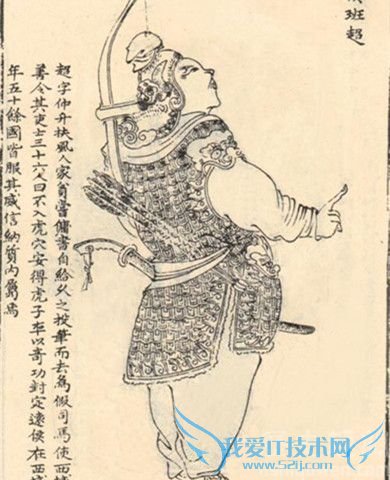 班超
超字仲升扶風人家貧嘗傭書自給久之投筆而去為假司馬使西
善令其吏士三十六人曰不入虎穴安得虎子卒以奇功封定遠侯在西
年五十餘國皆服其威信納質內屬焉
我爱IT技术网
www.52ij.com